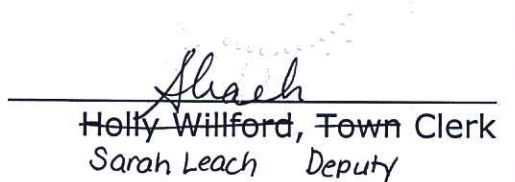 SLeach
Holly Willford, Town Clerk
Sarah Leach Deputy